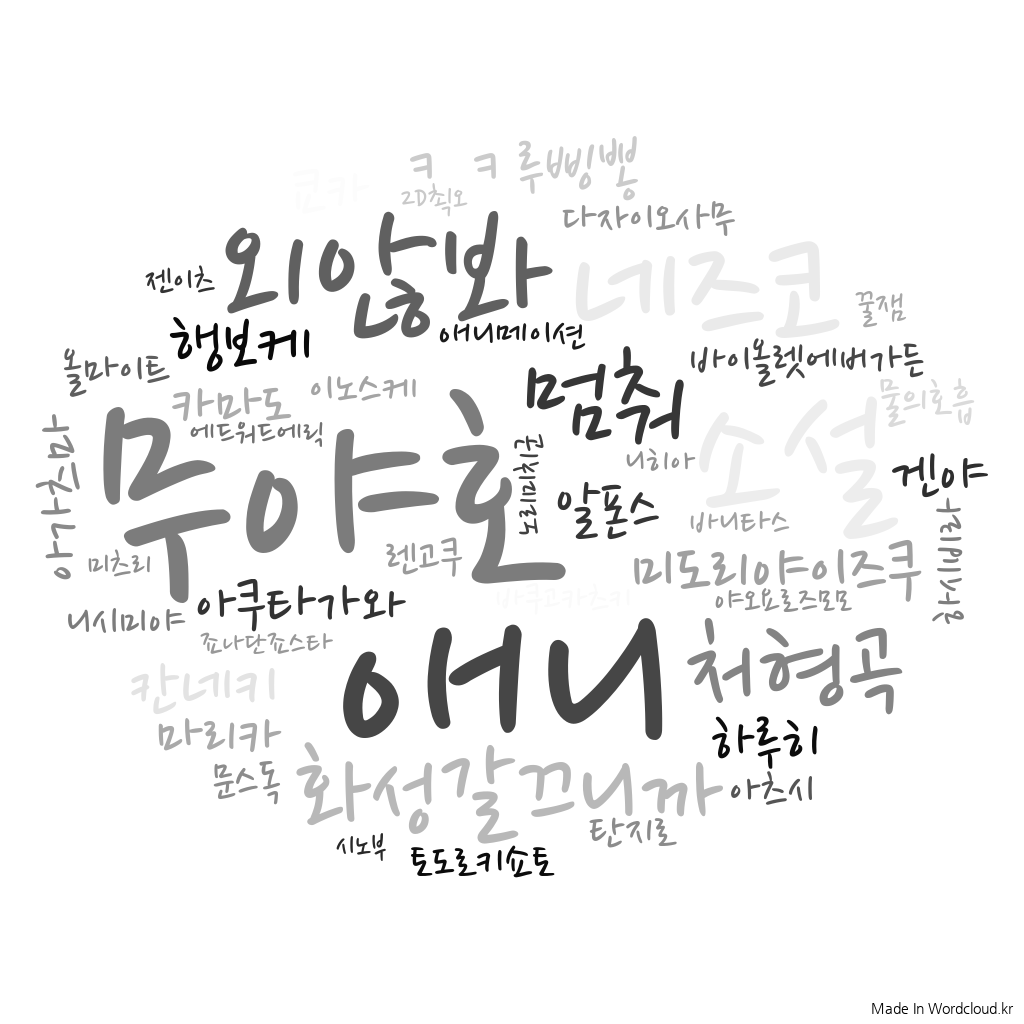 ㅋ ㅋ 루삥뽕
쿄카
2D최오
다자이오사무
외않봐
네즈코
젠이츠
꿀잼
행보케
애니메이션
올마이트
바이올렛에버가든
멈춰
물의호흡
카마도
이노스케
에드워드에릭
무야호
소설
아가츠마
노리미치군
니히아
겐야
알폰스
바니타스
사리삐사항
미츠리
렌고쿠
미도리야이즈쿠
바쿠고카츠키
야오요로즈모모
아쿠타가와
니시미야
죠나단죠스타
애니
처형곡
칸네키
마리카
하루히
문스독
화성갈끄니까
아츠시
탄지로
시노부
토도로키쇼토
Made In Wordcloud.kr